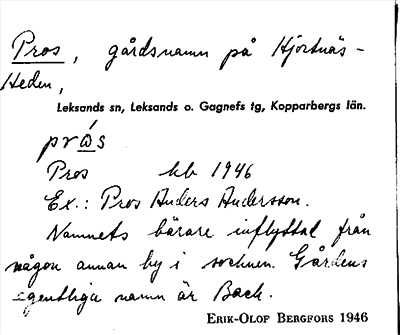 Pros, gårdsnamn på Hjortnäs-
Heden,
Leksands sn, Leksands o. Gagnefs tg, Kopparbergs län.
prɷ́s
Pros kb 1946
Ex.: Pros Anders Andersson.
Namnets bärare inflyttat från
någon annan by i socknen. Gårdens
egentliga namn är Back.
ERIK-OLOF BERGFORS 1946